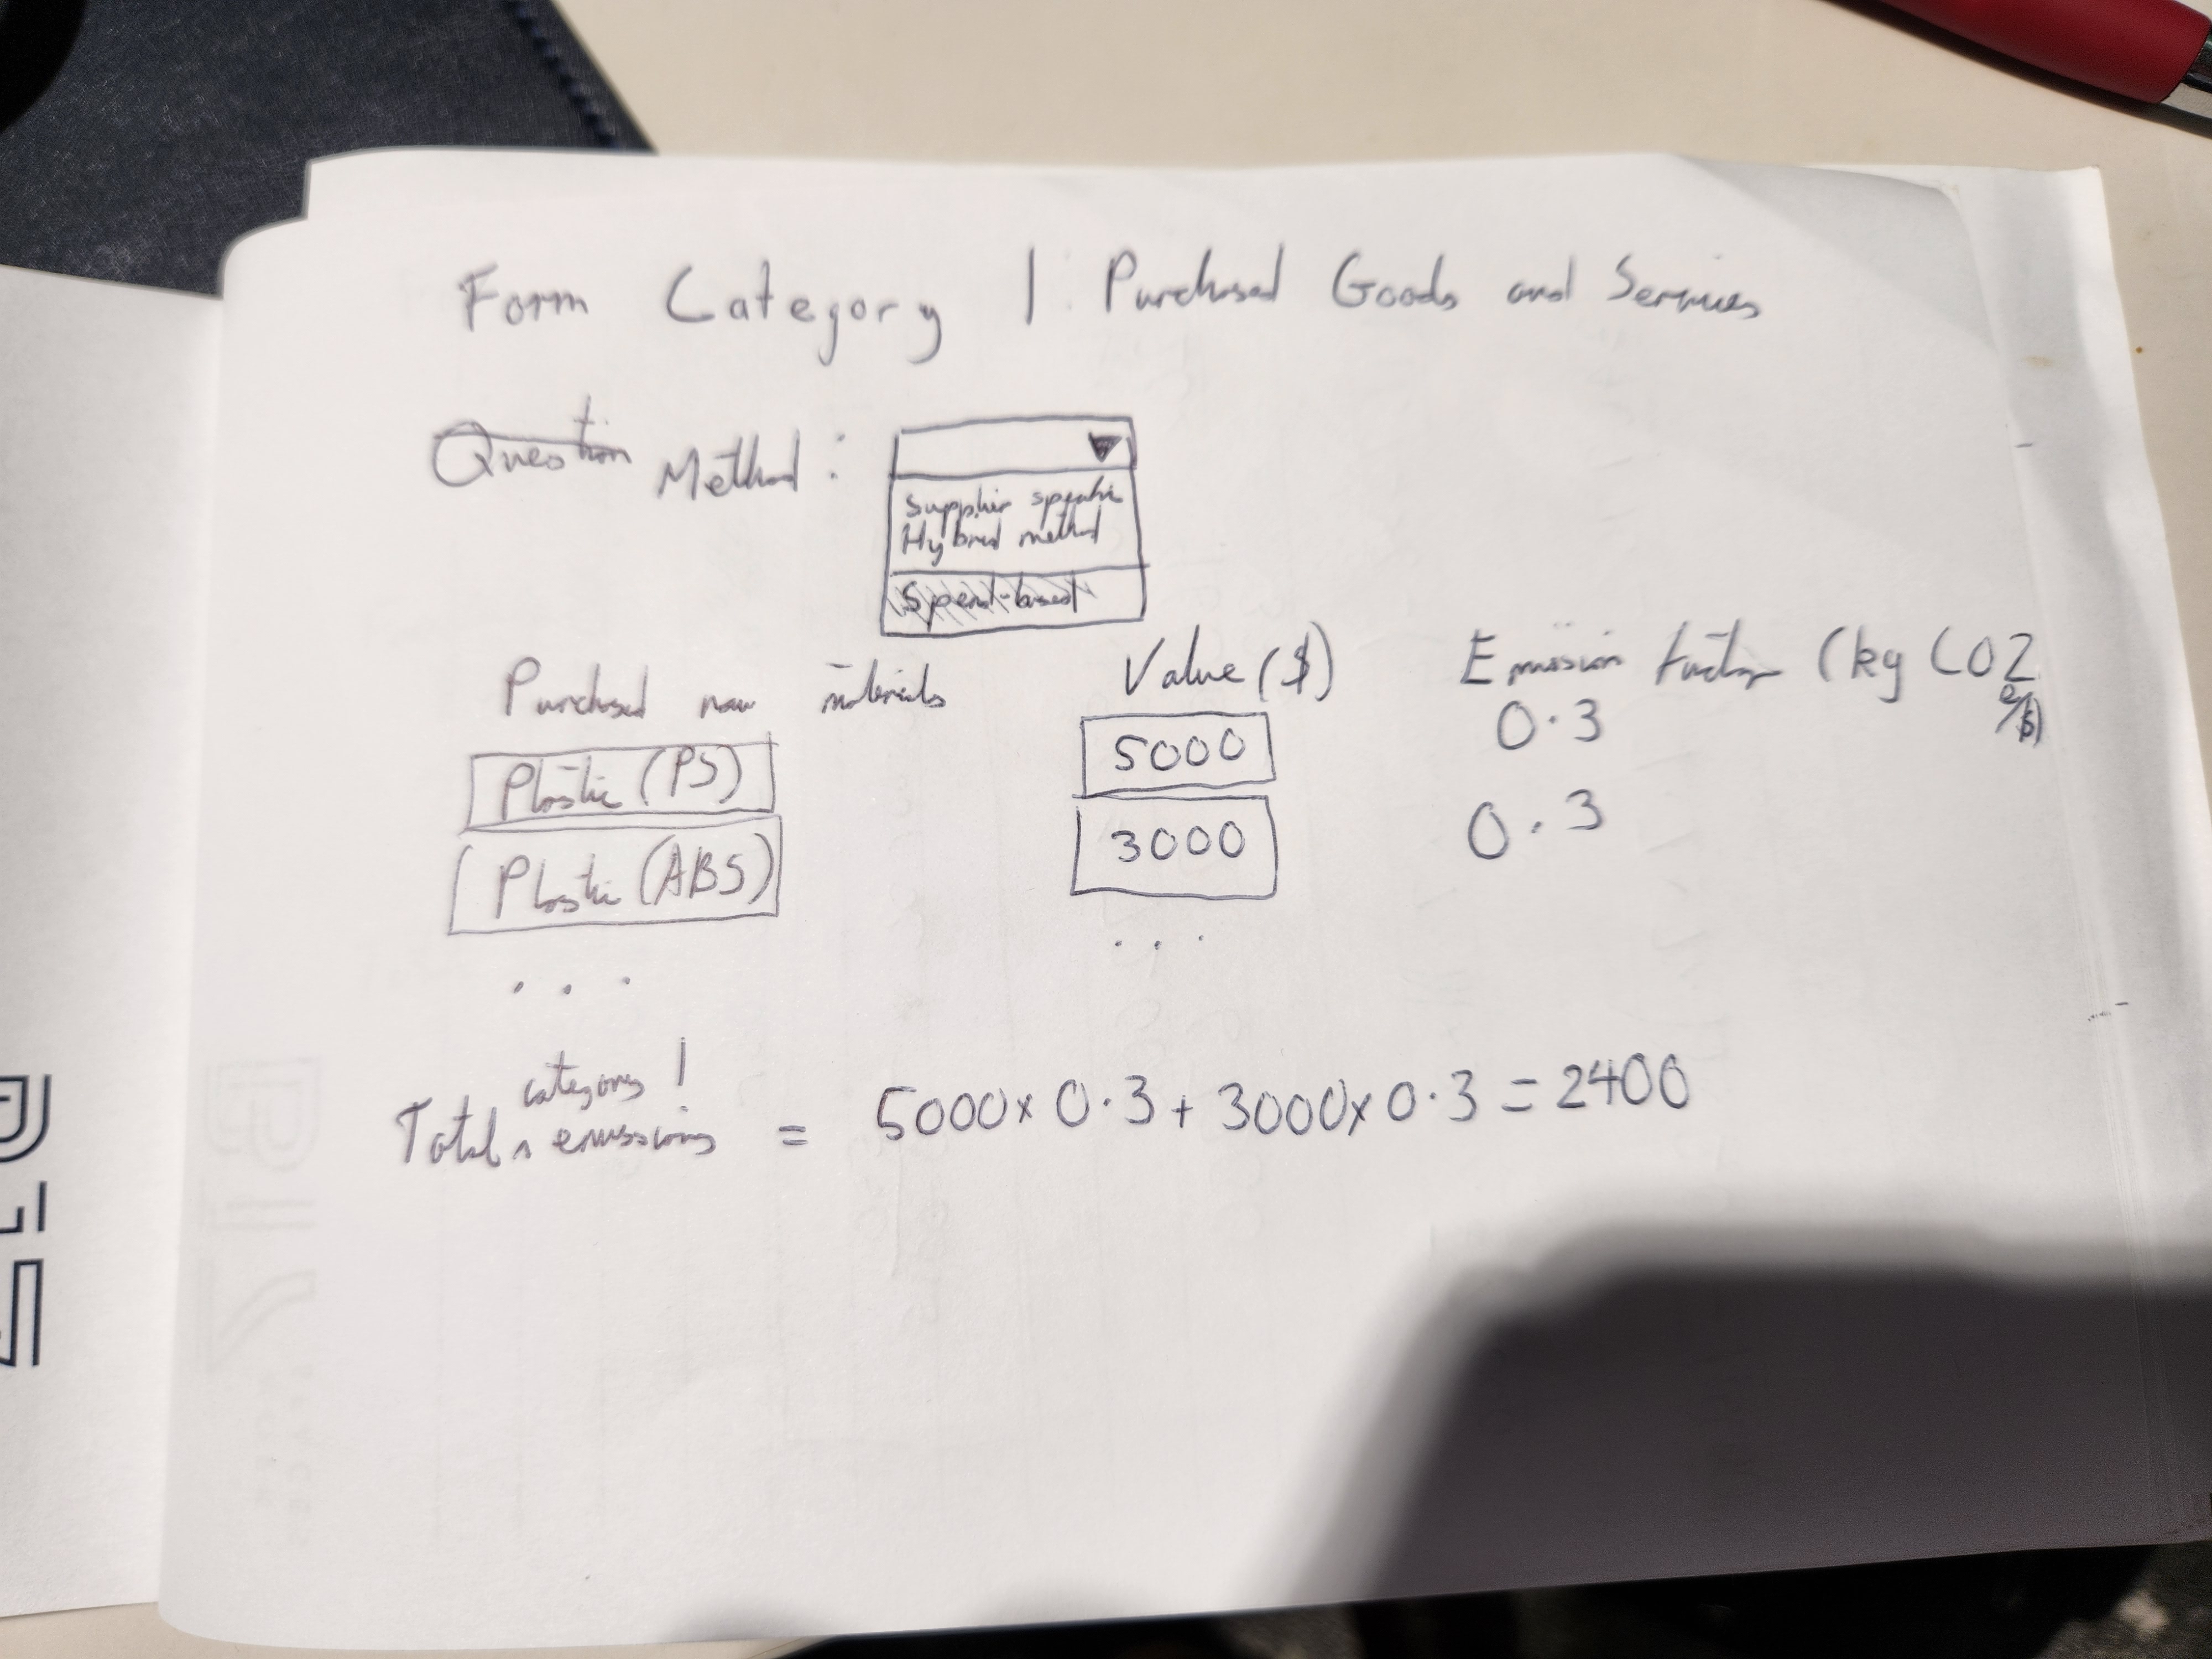 Form Category 1: Purchased Goods and Services
Question Method:
Supplier specific
Hybrid method
Spend-based
Purchased raw materials Value ($) Emission factor (kg CO2
e/$)
Plastic (PS) 5000 0.3
Plastic (ABS) 3000 0.3
... ...
category 1
Total ^ emissions = 5000x 0.3 + 3000x 0.3 = 2400